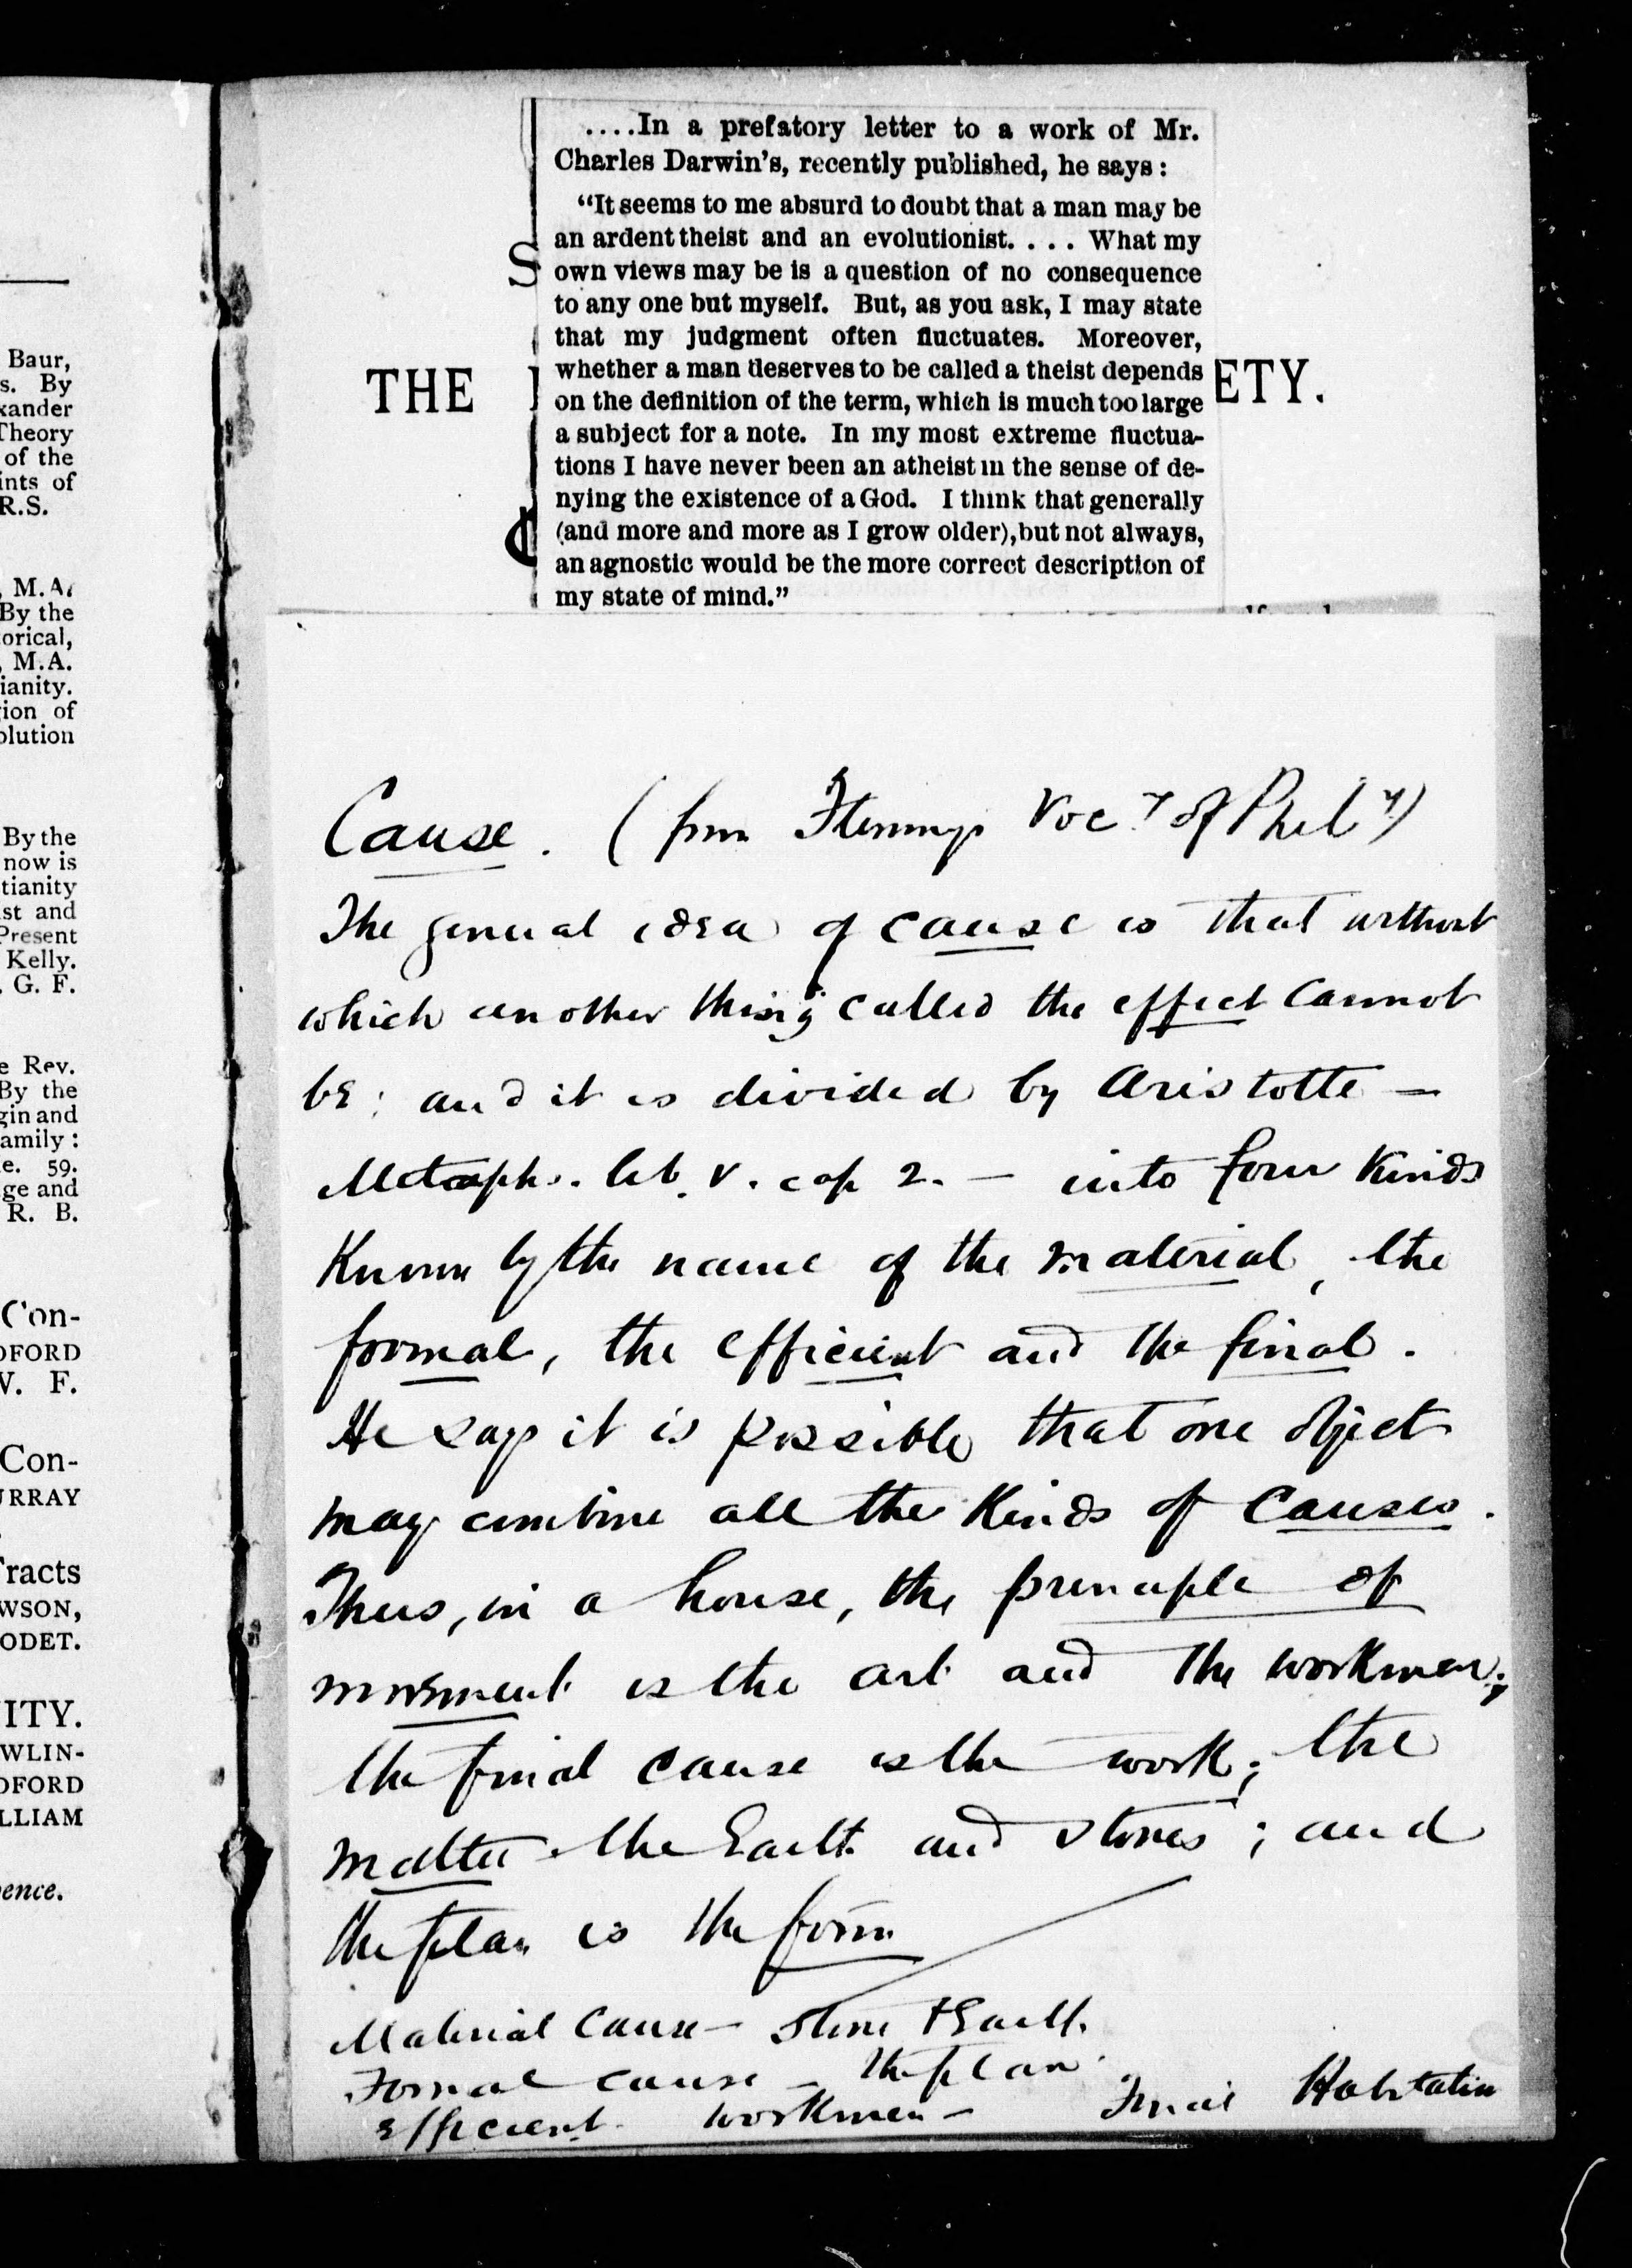 Baur,
s. By
xander
Theory
of the
ints of
R.S.
, M.A.
By the
orical,
, M.A.
ianity.
ion of
olution
By the
now is
tianity
st and
Present
Kelly.
. G. F.
e Rev.
By the
gin and
amily :
e. 59.
ge and
R. B.
Con-
DFORD
V. F.
Con-
URRAY
Tracts
WSON,
ODET.
ITY.
WLIN-
DFORD
LLIAM
ence.
....In a prefatory letter to a work of Mr.
Charles Darwin's, recently published, he says:
"It seems to me absurd to doubt that a man may be
an ardent theist and an evolutionist. . . . What my
own views may be is a question of no consequence
to any one but myself. But, as you ask, I may state
that my judgment often fluctuates. Moreover,
whether a man deserves to be called a theist depends
on the definition of the term, which is much too large
a subject for a note. In my most extreme fluctua-
tions I have never been an atheist in the sense of de-
nying the existence of a God. I think that generally
(and more and more as I grow older), but not always,
an agnostic would be the more correct description of
my state of mind."
S
THE ETY.
Cause. (from Flemings Vocy of Phily)
The general idea of cause is that without
which another thing called the effect cannot
be; and it is divided by Aristotle —
Metaph. lib. V. cap 2. — into four kinds
Known by the name of the material, the
formal, the efficient and the final.
He says it is possible that one object
may combine all the kinds of causes.
Thus, in a house, the principle of
movement is the art and the workmen;
the final cause is the work; the
matter the Earth and stones; and
the plan is the form
Material Cause — Stone + Earth.
Formal cause — the plan.
Efficient. workmen — Final Habitation